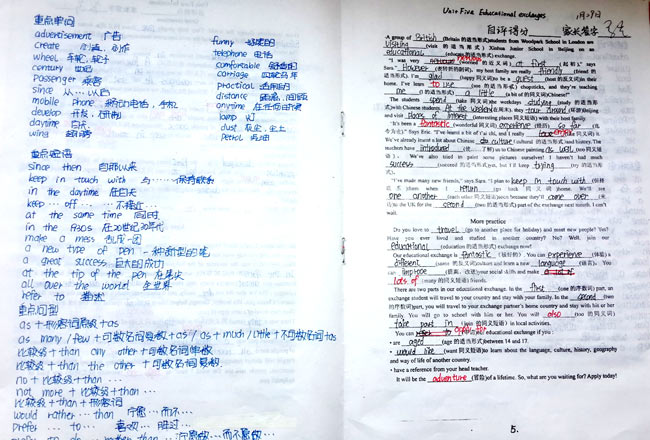 重点单词
advertisement 广告
create 创造, 创作
wheel 车轮, 轮子
century 世纪
Passenger 乘客
since 从……以后
mobile phone 移动电话, 手机
develop 开发, 研制
daytime 白天
wing 翅膀
funny
telephone 电话
comfortable 舒适的
carriage 四轮马车
practical 适用的
distance 距离, 间隔
anytime 在任何时候
lamp 灯
dust 灰尘, 尘土
Petrol 汽油
重点短语
since then 自那以来
keep in touch with 与……保持联系
in the daytime 在白天
keep … off … 不接近…
at the same time 同时
in the 1930s 在20世纪30年代
make a mess 乱成一团
a new type of pen 一种新型的笔
a great success 巨大的成功
at the tip of the pen 在笔尖
all over the world 全世界
refer to 描述
重点句型
as + 形容词原级 + as
as many / few + 可数名词复数 + as / as + much / little + 不可数名词 + as
比较级 + than any other + 可数名词单数
比较级 + than the other + 可数名词复数
no + 比较级 + than …
not more + 比较级 + than …
比较级 + than + 形容词
would rather … than 宁愿…而不…
prefer … to … 喜欢…胜过…
Unit Five Educational exchanges
1月29日
自评得分 家长签字
A group of British (Britain 的适当形式)students from Woolpark School in London are
visiting (visit 的适当形式) Xinhua Junior School in Beijing on an
educational (educate 的适当形式) exchange.
"I was very nervous at first (起初)," says
Sara." However (表转折的副词), my host family are really friendly (friend 的
适当形式). I'm glad (happy 同义词)to be a guest (host 的反义词)in their
home. I've learnt to use (use 的适当形式) chopsticks, and they're teaching
me a little (a bit 的同义词)Chinese!"
The students spend (take 同义词)the weekdays studying (study 的适当形
式)with Chinese students. At the weekend tour around Beijing
and visit places of interest (interesting places 同义短语) with their host family.
"It's been a fantastic (wonderful 同义词) experience (经历) so far (迄
今为止)," Says Eric. "I've learnt a bit of t'ai chi, and I enjoy
We've already learnt a lot about Chinese culture (cultural 的适当形式)and history. The
teachers have introduced a us to Chinese painting as well (too 同义词
). We've also tried to paint some pictures ourselves! I haven't had much
success (succeed 的适当形式)yet, but I'll keep trying (try 的适当形式).
"I've made many new friends," says Sara. "I plan to keep in touch with (保持
联系)them when I return (go back 同义词) home. We'll see
one another (each other 同义短语)soon because they'll come over
to the UK for the second (two 的适当形式) part of the exchange next month. I can't
wait.
More practice
Do you love to travel (go to another place for holiday) and meet new people? Yes?
Have you ever lived and studied in another country? No? Well, join our
educational (education 的适当形式) exchange now!
Our educational exchange is fantastic (极好的) . You can experience (体验) a
different culture and learn a new language (语言). You
can improve (提高, 改进)your social skills and make
lots of (many 的同义短语) friends.
There are two parts in our educational exchange. In the first (one 的序数词) part, an
exchange student will travel to your country and stay with your family. In the second (two
的序数词)part, you will travel to your exchange partner's home country and stay with his or her
family. You will go to school with him or her. You will also (too 的同义词)
take part in (join 的同义短语) in local activities.
You can apply for educational exchange if you :
• are aged (age 的适当形式)between 14 and 17.
• would like (want 同义短语)to learn about the language, culture, history, geography
and way of life of another country.
• have a reference from your head teacher.
It will be the adventure (冒险)of a lifetime. So, what are you waiting for? Apply today!
5.